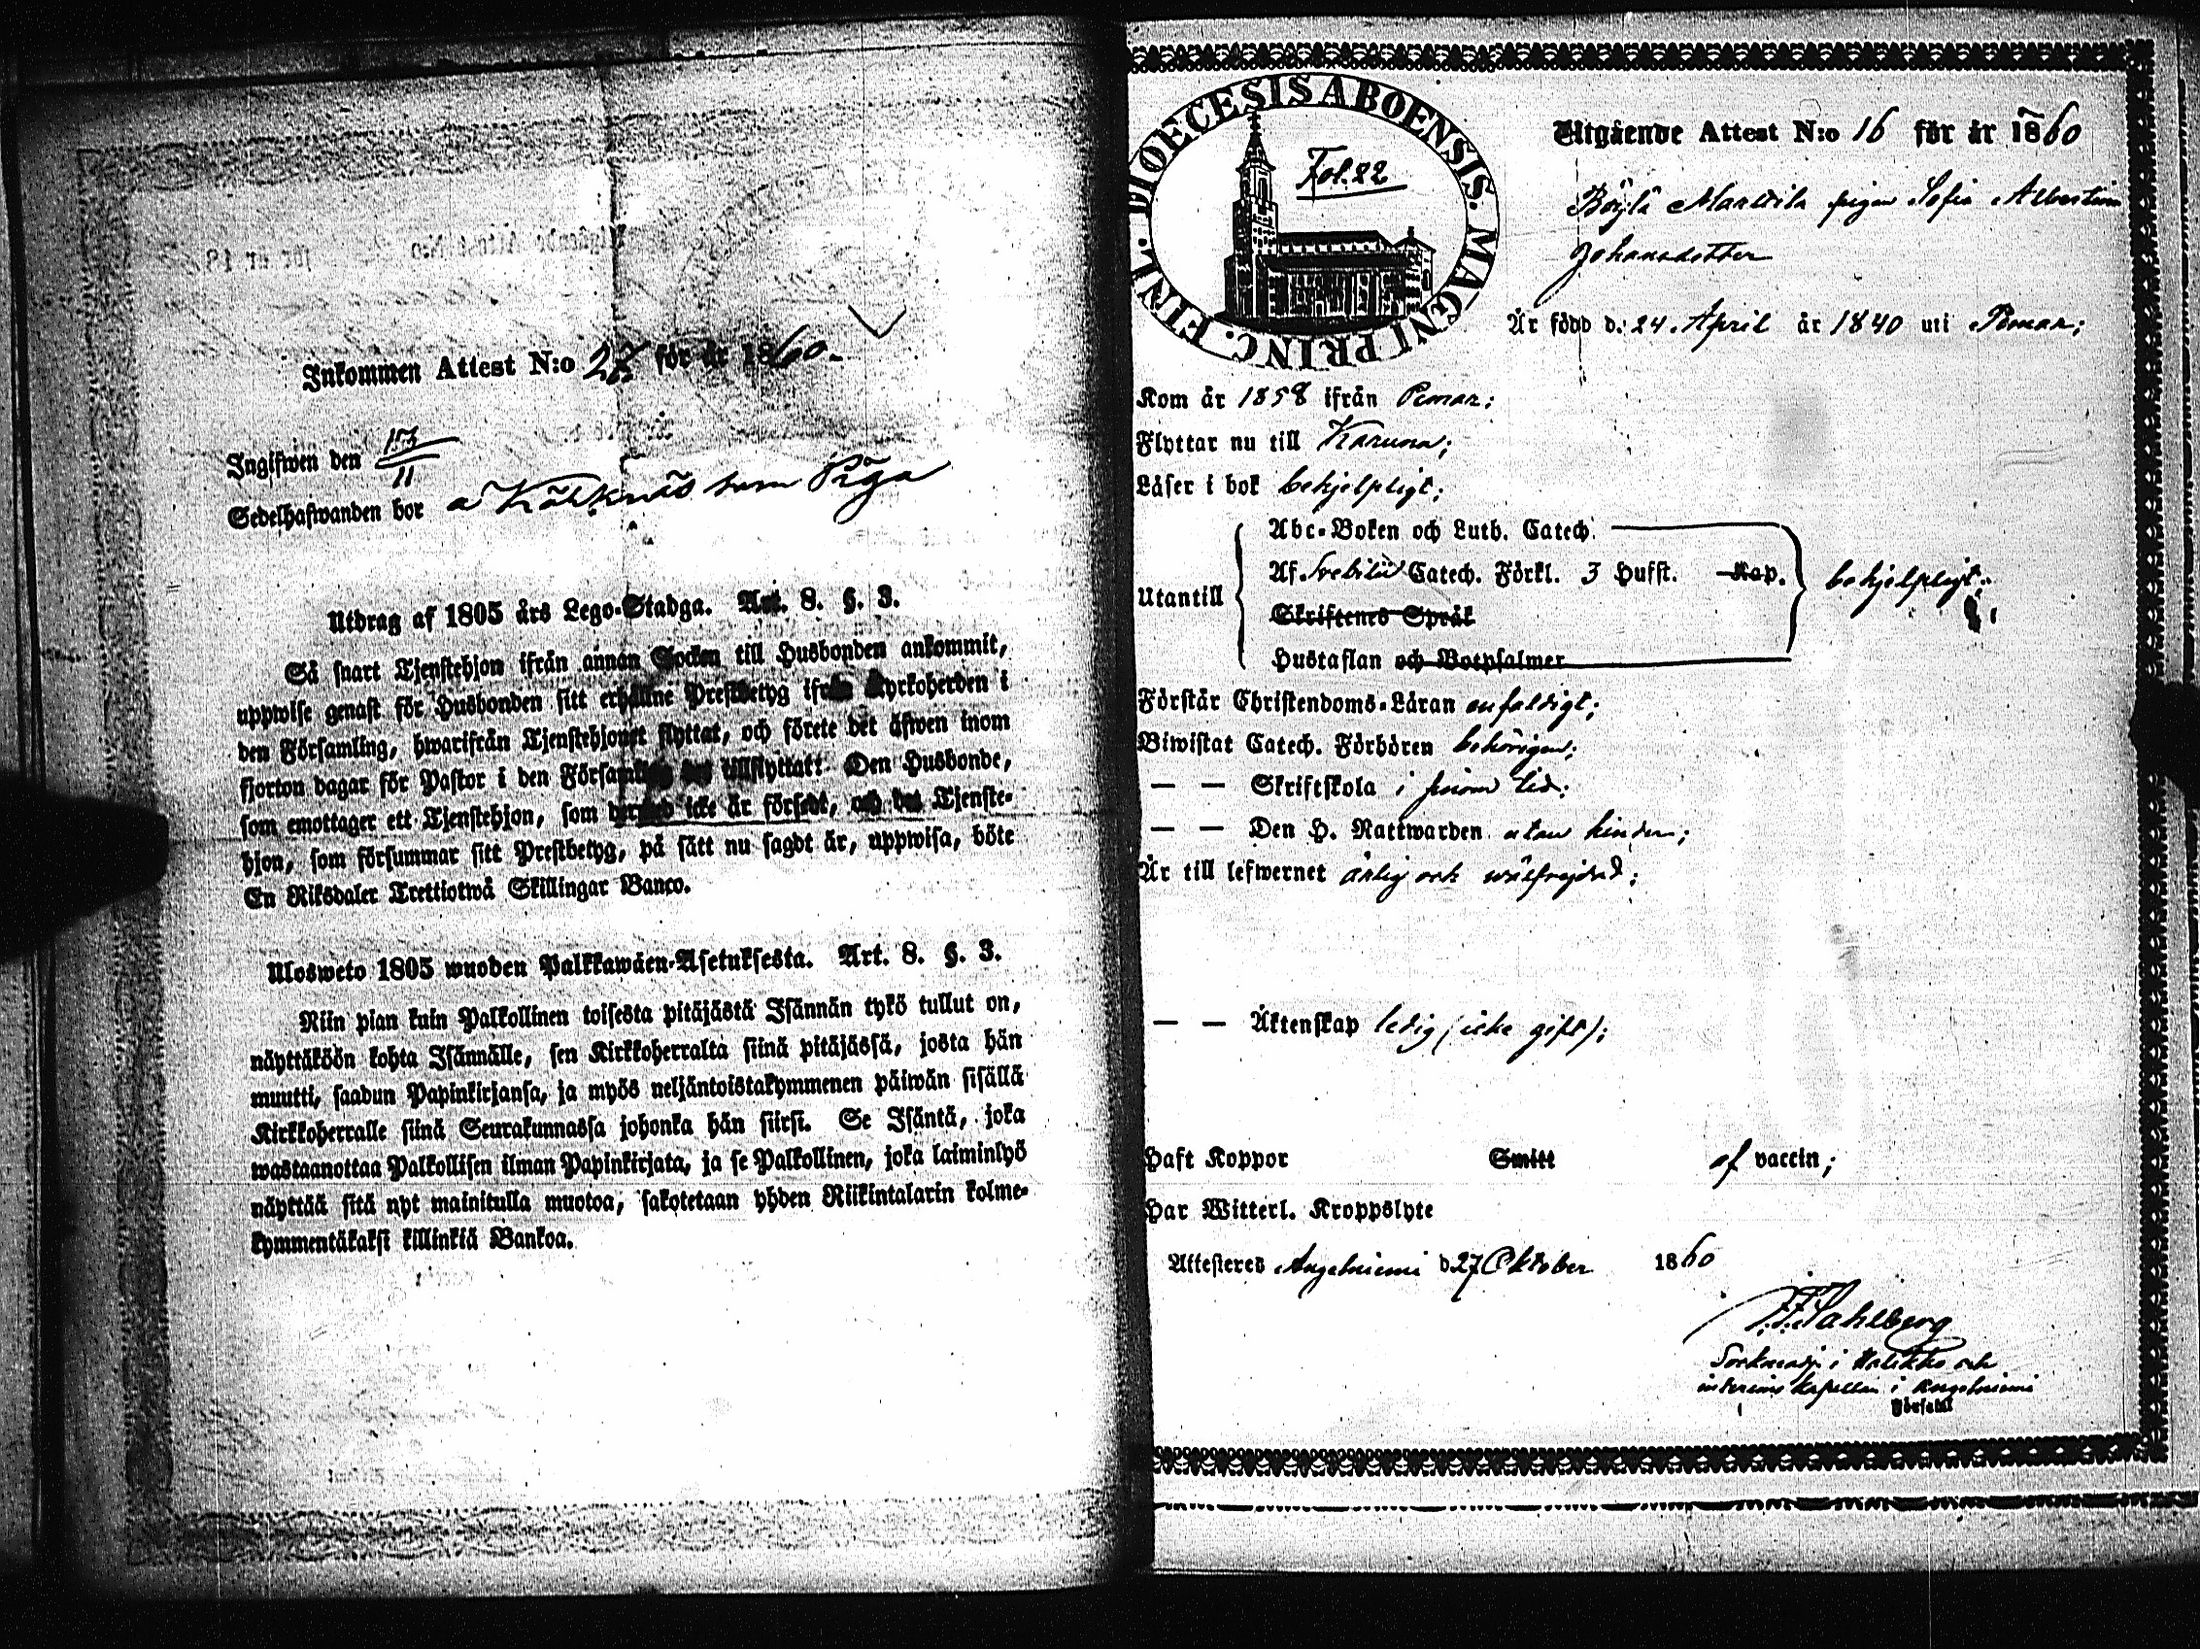 Inkommen Attest N:o för år 1860.
Ingifwen den
11
Sedelhafwanden bor å som Piga
Utdrag af 1805 års Lego-Stadga. Art. 8. §. 3.
Så snart Tjenstehjon ifrån annan Socken till Husbonden ankommit,
uppwise genast för Husbonden sitt erhållne Prestbetyg ifrån Kyrkoherden i
den Församling, hwarifrån Tjenstehjonet flyttat, och förete det äfwen inom
fjorton dagar för Pastor i den tillflyttatt. Den Husbonde,
som emottager ett Tjenstehjon, som icke är försedt, och det Tjenste-
hjon, som försummar sitt Prestbetyg, på sätt nu sagdt är, uppwisa, böte
En Riksdaler Trettiotwå Skillingar Banco.
Ulosweto 1805 wuoden Palkkawäen-Asetuksesta. Art. 8. §. 3.
Niin pian kuin Palkollinen toisesta pitäjästä Isännän tykö tullut on,
näyttäköön kohta Isännälle, sen Kirkkoherralta siinä pitäjässä, josta hän
muutti, saadun Papinkirjansa, ja myös neljäntoistakymmenen päiwän sisällä
Kirkkoherralle siinä Seurakunnassa johonka hän siirsi. Se Isäntä, joka
wastaanottaa Palkollisen ilman Papinkirjata, ja se Palkollinen, joka laiminlyö
näyttää sitä nyt mainitulla muotoa, sakotetaan yhden Riikintalarin kolme-
kymmentäkaksi killinkiä Bankoa.
FINL. DIOECESIS ABOENSIS. MAGNI PRINC.
Fol. 22
Utgående Attest N:o 16 för år 1860
Marttila pigan Sofia Albertina
Johansdotter
Är född d. 24 April år 1840 uti Pemar;
Kom år 1858 ifrån Pemar;
Flyttar nu till Karuna;
Läser i bok behjelpligt;
Utantill
Abc-Boken och Luth. Catech.
Af Svebilii Catech. Förkl. 3 Hufst. Kap.
behjelpligt;
Skriftenes Språk
Hustaflan och Botpsalmer
Förstår Christendoms-Läran enfaldigt;
Biwistat Catech. Förhören behörigen;
— — Skriftskola i sinom tid;
— — Den H. Nattwarden utan hinder;
Är till lefwernet ärlig och wälfrejdad;
— — Äktenskap ledig (icke gift);
Haft Koppor Smitt af vaccin;
Har Witterl. Kroppslyte
Attesteres Angelniemi d. 27 Oktober 1860
Sahlberg
Sockneadj. i Halikko och
interims Kapellan i Angelniemi
Församl